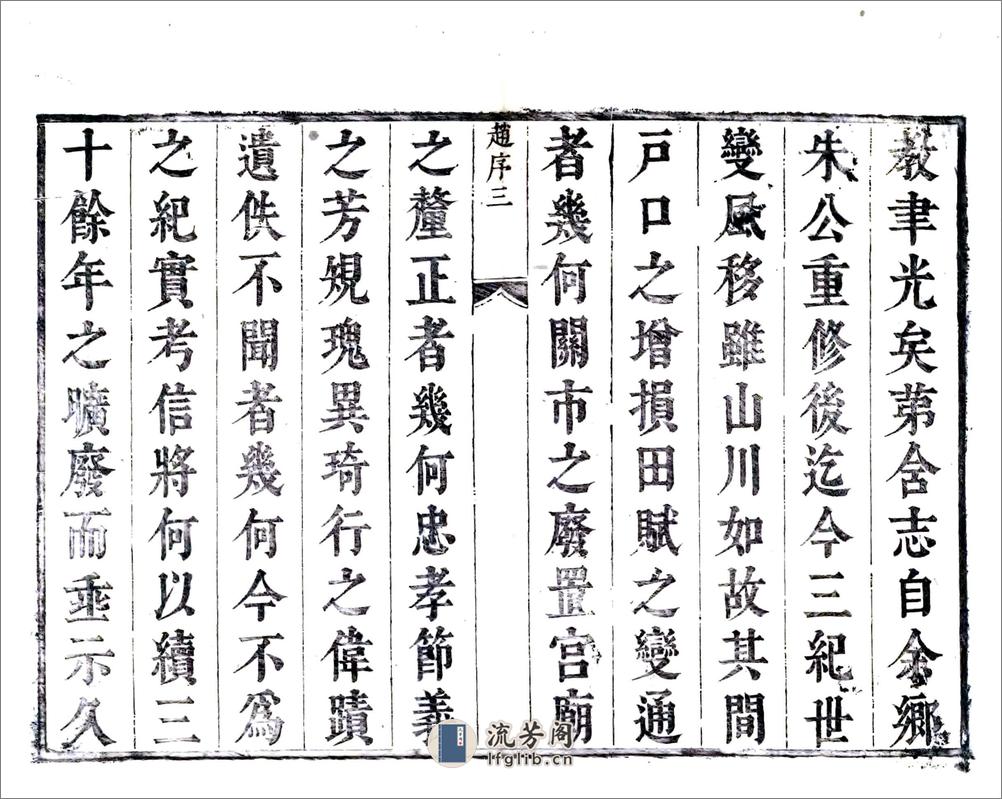 教聿光矣苐舍志自余鄉
朱公重修後迄今三紀世
變風移雖山川如故其間
戸口之增損田賦之變通
者幾何關市之廢置宮廟
趙序三
之釐正者幾何忠孝節義
之芳規瑰異琦行之偉蹟
遺佚不聞者幾何今不爲
之紀實考信將何以續三
十餘年之曠廢而垂示久
流芳阁
lfglib.cn